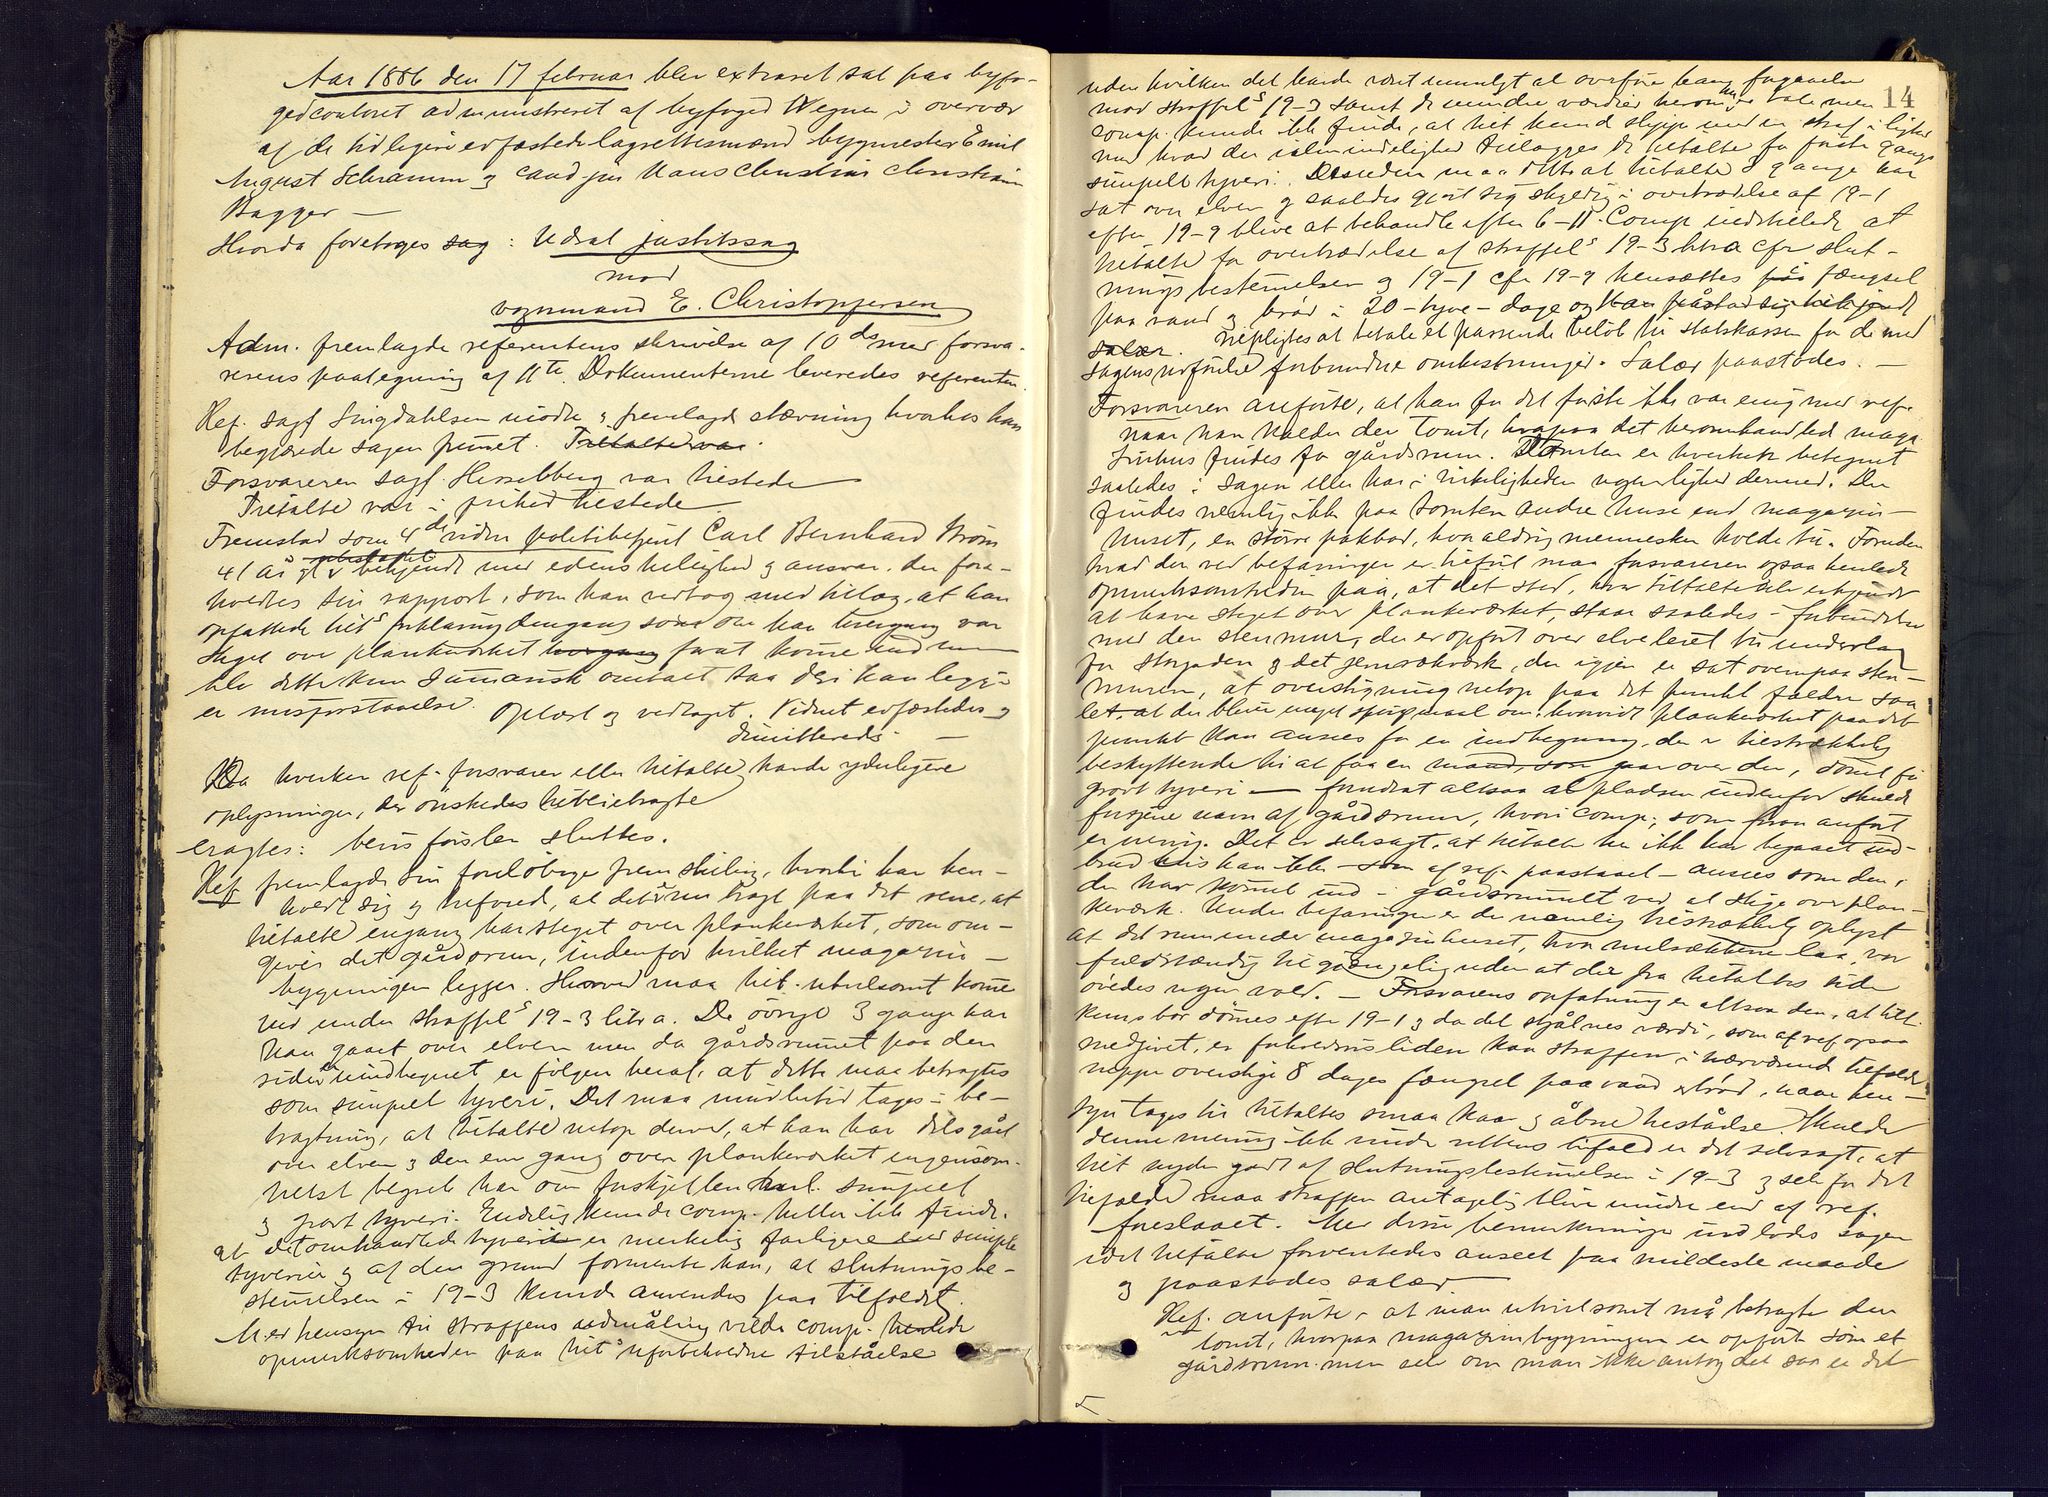 Aar 1886 den 17 februar blev extraret sat paa byfo-
gedcontoret administreret af byfoged Wegner i overvær
af de tidligere edfæstede lagrettesmænd bygmester Emil
August Schramm og cand jur Hans Christian Christian
Bagger —
Hvorda foretoges sag: Udsat justitssag
mod
vognmand E. Christophersen
Adm. fremlagde referentens skrivelse af 10de med forsva-
rerens paategning af 11te. Dokumenterne leveredes referenten.
Ref. sagf Singdahlsen mødte og fremlagde stævning hvorhos han
begjærede sagen fremet. Tiltalte var
Forsvareren sagf. Hesselberg var tilstede
Tiltalte var i frihed tilstede.
Fremstod som 4de vidne politibetjent Carl Bernhard Strøm
41 år gl ubeslægtet bekjendt med edens hellighed og ansvar. der fore-
holdtes sin rapport, som han vedtog med tillæg, at han
opfattede tilts forklaring dengang som om han tvergang var
steget over plankeværket hvergang forat komme ind men
blev dette kun summarisk omtalt saa deri kan ligge
en misforstaaelse. Oplæst og vedtaget. Vidnet edfæstedes og
dimitteredes —
Da hverken ref. forsvarer eller tiltalte havde yderligere
oplysninger, der ønskedes tilveiebragte
eragtes: bevisførslen sluttes.
Ref fremlagde sin foreløbige fremstilling, hvortil han hen-
holdt sig og tilføied, at det var bragt paa det rene, at
tiltalte engang har steget over plankeværket, som om-
giver det gårdsrum, indenfor hvilket magazin-
bygningen ligger. Herved maa tilt. utvilsomt komme
ind under straffels 19-3 litra. De øvrige 3 gange har
han gaaet over elven men da gårdsrummet paa den
side er uindhegnet er følgen heraf, at dette maa betragtes
som simpelt tyveri. Det maa imidlertid tages i be-
tragtning, at tiltalte netop derved, at han har dels gået
over elven og den ene gang over plankeværket ingensom-
helst begreb har om forskjellen mel. simpelt
og grovt tyveri. Endelig kunde comp. heller ikke finde,
at det omhandlede tyveri er merkelig farligere end simple
tyverier og af den grund formente han, at slutningsbe-
stemmelsen i 19-3 kunde anvendes paa tilfældet.
Med hensyn til straffens udmåling vilde comp. henlede
opmerksomheden paa tilts uforbeholdne tilståelse
14
uden hvilken det havde været umuligt at overføre ham forgaaelse
mod straffels 19-3 samt de mindre værdier herom er tale men
comp. kunde ikke finde, at tilt kunde slippe med en straf i lighed
med hvad der i almindelighed tillægges de tiltalte for første gangs
simpelt tyveri. Desuden maa det at tiltalte 3 gange har
sat over elven og saaledes gjort sig skyldig i overtrædelse af 19-1
efter 19-9 blive at behandle efter 6-11. Comp indstillede at
tiltalte for overtrædelse af straffels 19-3 litra cfr slut-
ningsbestemelsen og 19-1 cfr 19-9 hensættes på fængsel
paa vand og brød i 20 - tyve - dage og han påstod sig tilkjendt
salær. tilpligtes at betale et passende beløb til statskassen for de med
sagens udførelse forbundne omkostninger. Salær paastodes. —
Forsvareren anførte, at han for det første ikke var enig med ref.
naar han kalder den tomt, hvorpaa det heromhandlede maga-
zinhus findes for gårdsrum. Tomten er hverken betegnet
saaledes i sagen eller har i virkeligheden nogen lighed dermed. Der
findes nemlig ikke paa tomten andre huse end magazin-
huset, en større pakbod, hvor aldrig mennesker holde til. Foruden
hvad der ved befaringen er tilført maa forsvareren ogsaa henlede
opmerksomheden paa, at det sted, hvor tiltalte har erkjendt
at have steget over plankeværket, staar saaledes i forbindelse
med den stenmur, der er opført over elveleiet til underlag
for stygaden og det jernrækværk, der igjen er sat ovenpaa sten-
muren, at overstigning netop paa det punkt falder saa
let, at der bliver meget spørgsmaal om, hvorvidt plankeværket paa det
punkt kan ansees for en indhegning, der er tilstrækkelig
beskyttende til at faa en mand, som gaar over den, dømt for
grovt tyveri — forudsat altsaa at pladsen indenfor skulde
fortjene navn af gårdsrum, hvori comp, som foran anført
er uenig. Det er selvsagt, at tiltalte her ikke har begaaet ind-
brud hvis han ikke - som af ref. paastaaet - ansees som den,
der har kommet ind i gårdsrummet ved at stige over plan-
keværk. Under befaringen er det nemlig tilstrækkelig oplyst
at det rum under magazinhuset, hvor melsækkene laa, var
fuldstændig tilgjængelig uden at der fra tiltaltes side
øvedes nogen vold. — Forsvarens opfatning er altsaa den, at tilt.
kuns bør dømes efter 19-1 og da det stjålnes værdi, som af ref ogsaa
medgivet, er forholdsvis liden kan straffen i nærværende tilfælde
neppe overstige 8 dages fængsel paa vand og brød, naar hen-
syn tages til tiltaltes smaa kaar og åbne tilståelse. Skulde
denne mening ikke vinde rettens bifald er det selvsagt, at
tilt nyder godt af slutningsbestemelsen i 19-3 og selv for det
tilfælde maa straffen antagelig blive mindre end af ref.
foreslaaet. Med disse bemerkninger indlodes sagen
idet tiltalte forventedes anseet paa mildeste maade
og paastodes salær.
Ref. anførte, at man utvilsomt må betragte den
tomt, hvorpaa magazinbygningen er opført som et
gårdsrum. men selv om man ikke antog det saa er det